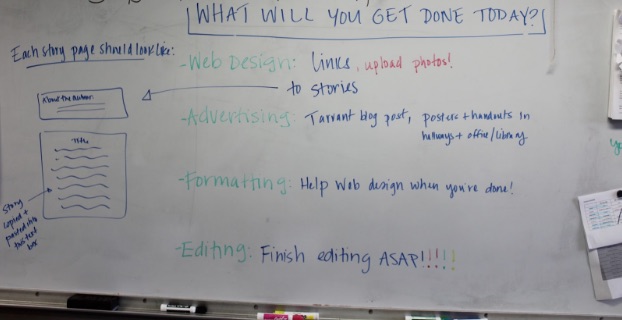 WHAT WILL YOU GET DONE TODAY?
Each story page should look like:
About the author:
Title
Story
copied +
pasted into
this text
box
-Web Design: Links, upload photos!
to stories
-Advertising: Tarrant blog post, posters + handouts in
hallways + office/library
-Formatting: Help Web design when you're done!
-Editing: Finish editing ASAP!!!!!